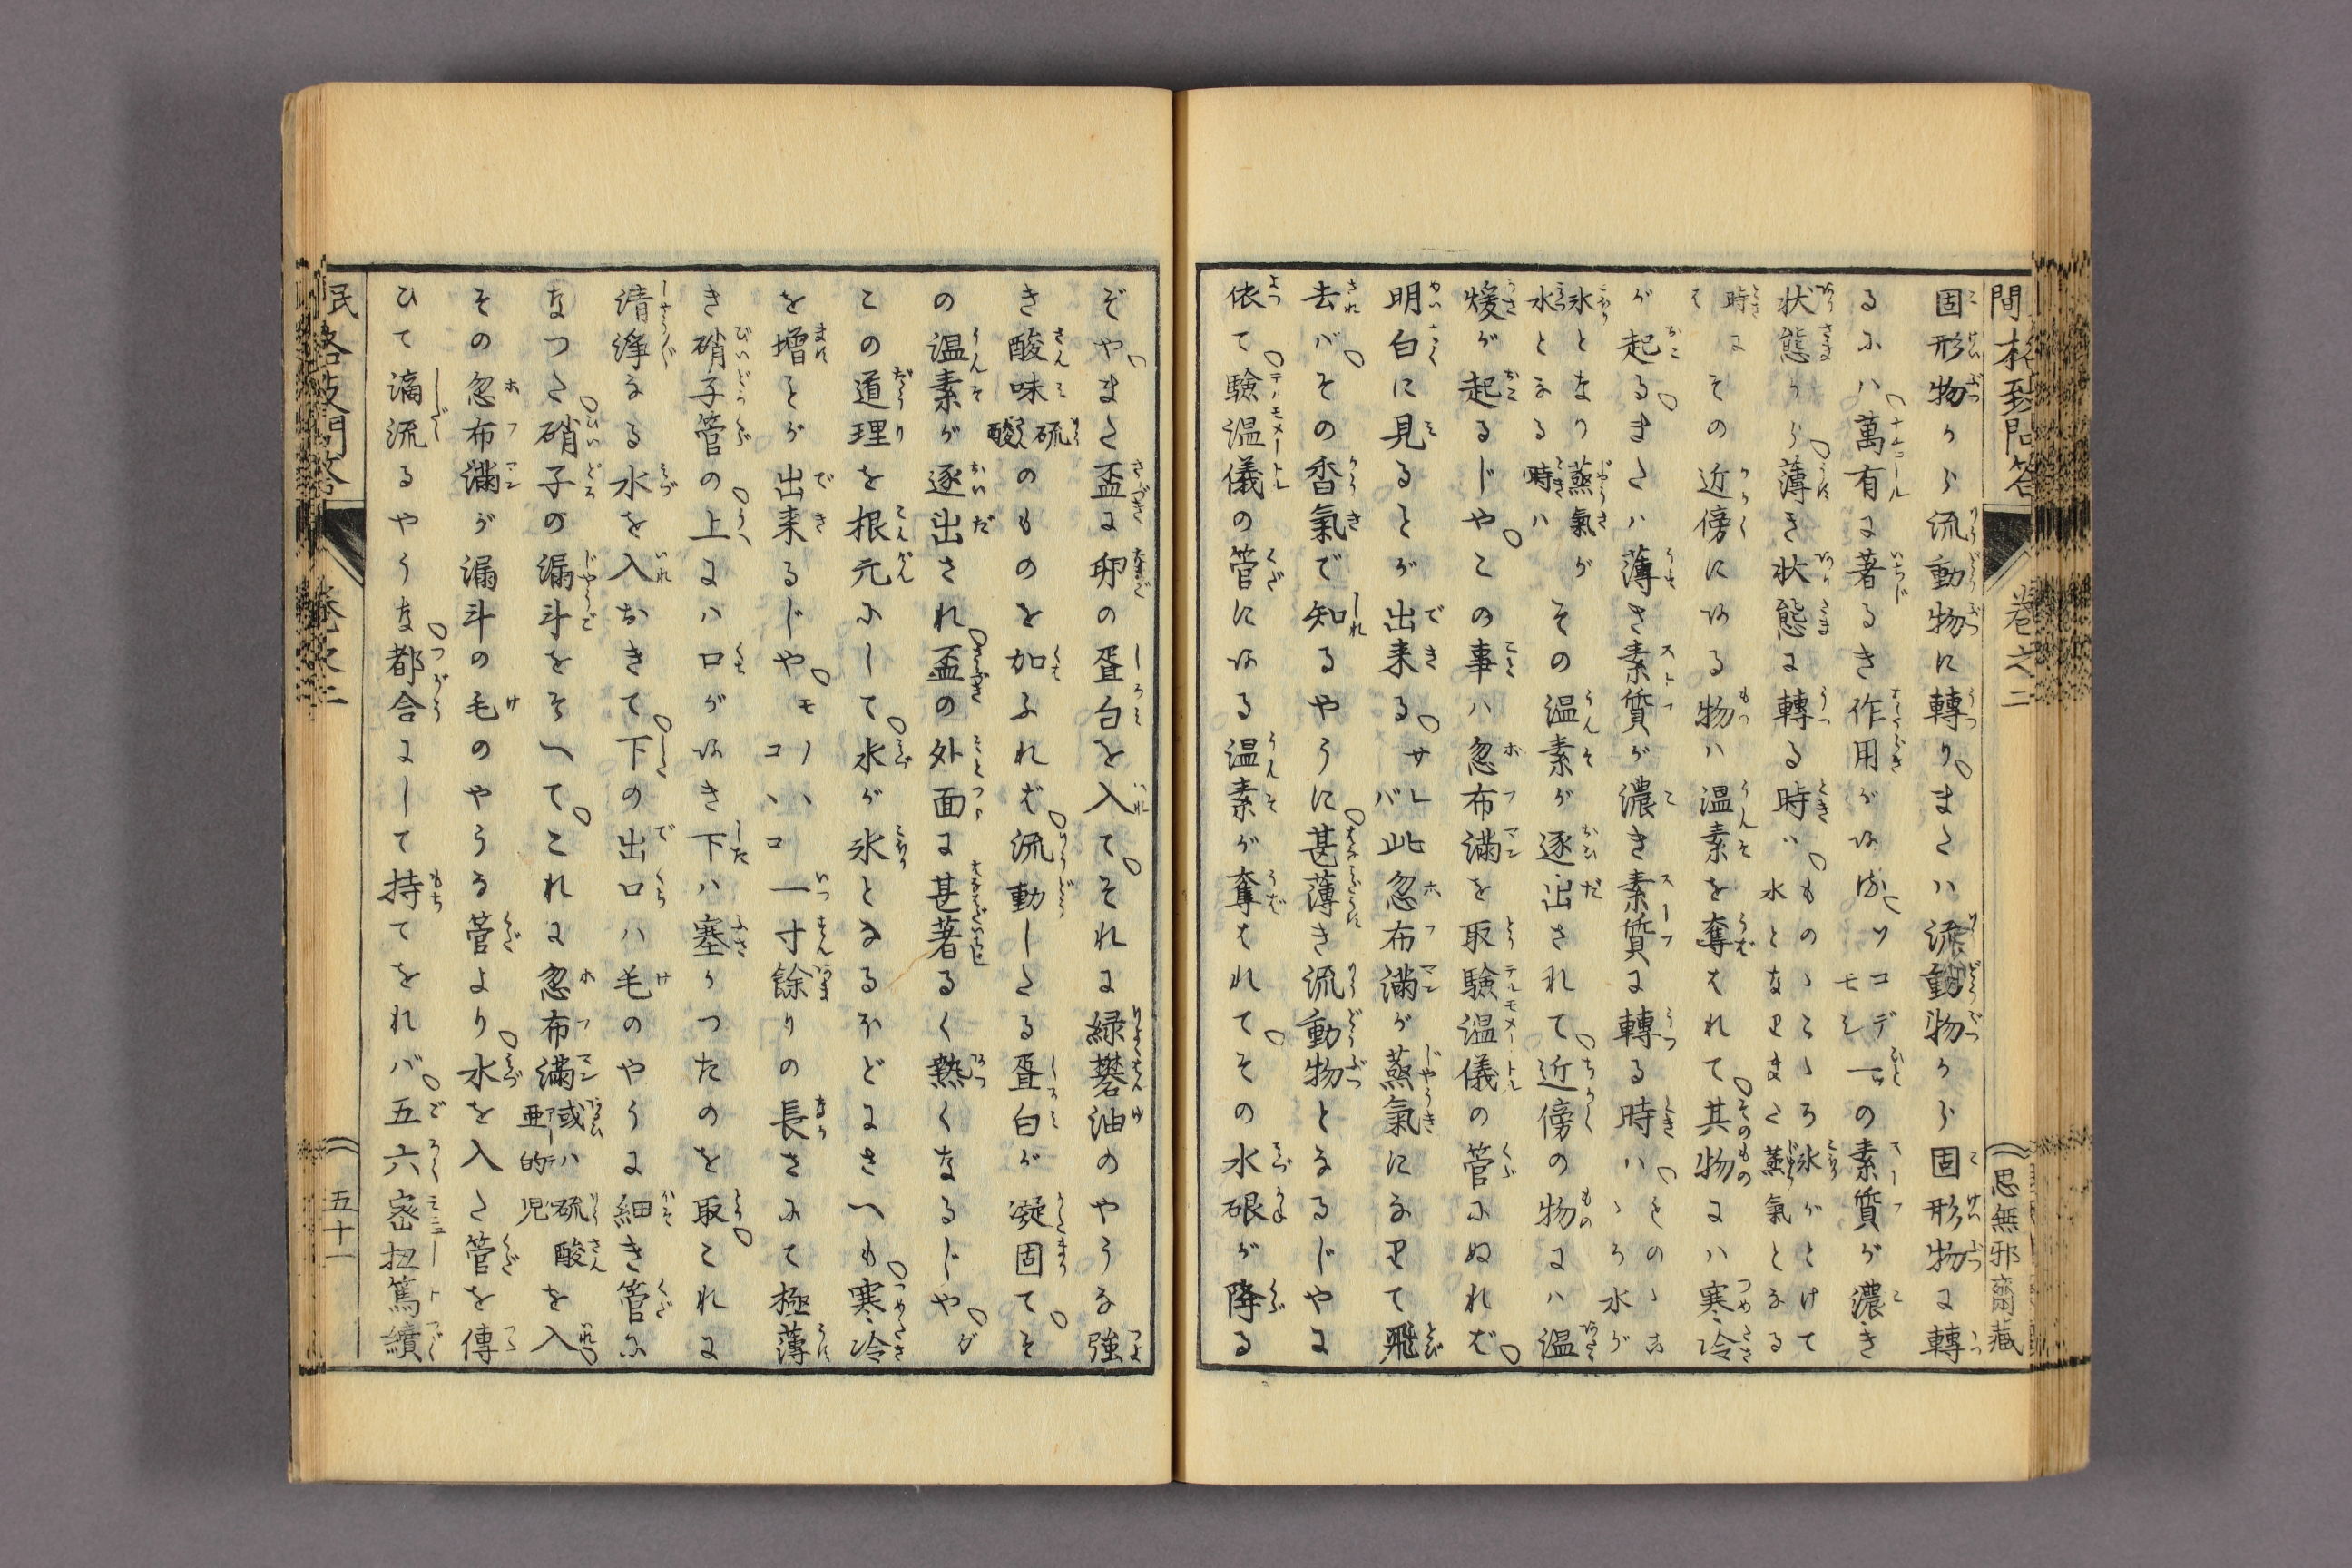 民間格致問答 巻之二 思無邪齋藏
固形物から流動物に轉り。または流動物から固形物に轉
るには。萬有に著るき作用がある。ソコデモシ一の素質が濃き
状態から。薄き状態に轉る時は。ものゝころ氷がとけて水となりまた蒸氣となる
時にそその近傍にある物は温素を奪はれて。其物には寒冷
が起る。または薄き素質が濃き素質に轉る時は。ものゝころ水が
氷となり蒸氣が水となる時はその温素が逐出されて。近傍の物には温
煖が起るじや。この事は忽布満を取験温儀の管にぬれば。
明白に見るとが出来る。サレバ此忽布満が蒸氣になりて飛
去ば。その香氣で知るやうに。甚薄き流動物となるじやに
依て。験温儀の管にある温素が奪はれて。その水銀が降る
ぞや。また盃に卵の蛋白を入て。それに緑礬油のやうな強
き酸味硫酸のものを加ふれば。流動したる蛋白が凝固て。そ
の温素が逐出され。盃の外面に甚著るく熱くなるじや。が
この道理を根元にして。水が氷となるほどにさへも。寒冷
を増とが出来るじや。モノハコヽコ一寸餘りの長さにて極薄
き硝子管の。上には口があき下は塞かつたのを取。これに
清浄なる水を入おきて。下の出口は毛のやうに細き管に
なつた。硝子の漏斗をそへて。これに忽布満或は硫酸亜的児を入。
その忽布満が漏斗の毛のやうな管より。水を入た管を傳
ひて滴流るやうな。都合にして持てをれば。五六宻扭篤續
民間格致問答 巻之二 五十一